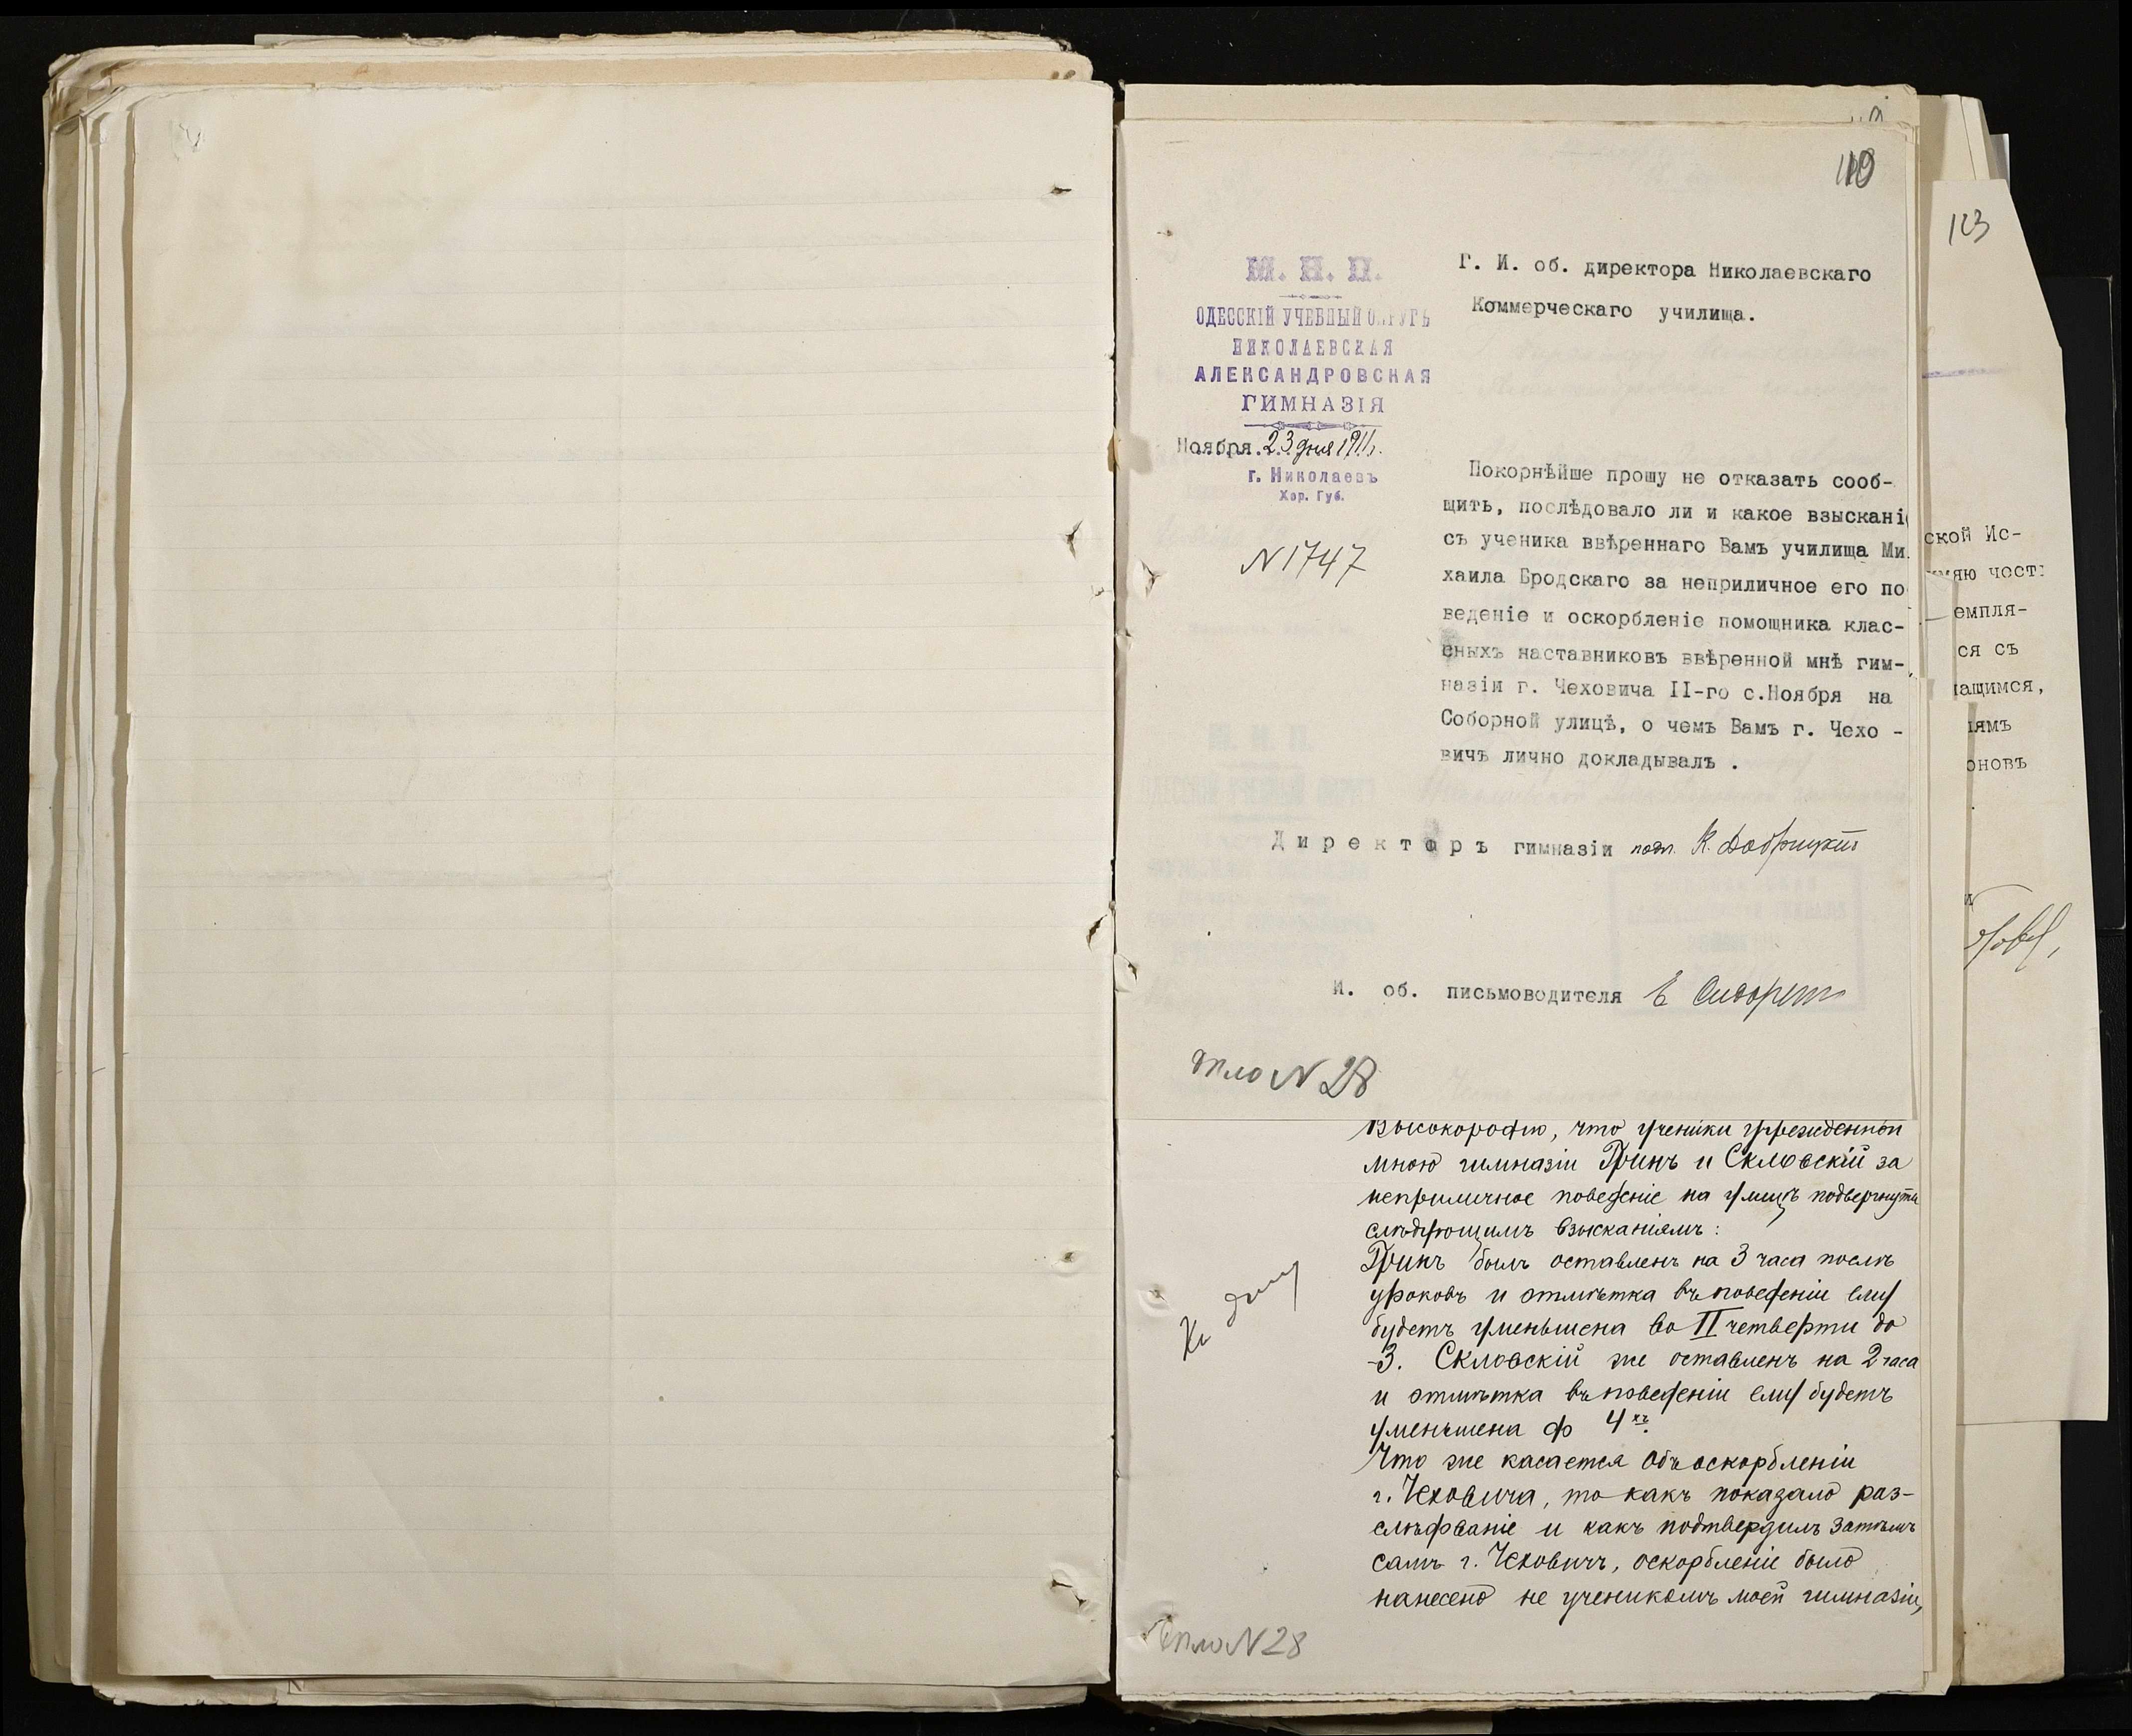 119
М. Н. П.
ОДЕССКІЙ УЧЕБНЫЙ ОКРУГЪ
НИКОЛАЕВСКАЯ
АЛЕКСАНДРОВСКАЯ
ГИМНАЗІЯ
Ноября 23 дня 1911 г.
г. Николаевъ
Хер. Губ.
N 1747
Г. И. об. директора Николаевскаго
Коммерческаго училища.
Покорнѣйше прошу не отказать сооб-
щить, послѣдовало ли и какое взысканіе
съ ученика ввѣреннаго Вамъ училища Ми
хаила Бродскаго за неприличное его по
веденіе и оскорбленіе помощника клас-
сныхъ наставниковъ ввѣренной мнѣ гим-
назіи г. Чеховича II-го с.Ноября на
Соборной улицѣ, о чемъ Вамъ г. Чехо -
вичъ лично докладывалъ .
Директоръ гимназіи подп. К. Добрицкій
И. об. письмоводителя Е
дѣло N 28
Высокородію, что ученики учрежденной
мною гимназіи Гринъ и Скловскій за
неприличное поведеніе на улицѣ подвергнуты
слѣдующимъ взысканіямъ:
Гринъ былъ оставленъ на 3 часа послѣ
уроковъ и отмѣтка въ поведеніи ему
будетъ уменьшена во II четверти до
-3. Скловскій же оставленъ на 2 часа
и отмѣтка въ поведеніи ему будетъ
уменьшена до 4хъ.
Что же касается объ оскорбленіи
г. Чеховича, то какъ показало раз-
слѣдованіе и какъ подтвердилъ затѣмъ
самъ г. Чеховичъ, оскорбленіе было
нанесено не ученикомъ моей гимназіи,
Къ дѣлу
дѣло N 28
123
ской Ис-
яю чест
емпля-
ся съ
ащимся,
ямъ
оновъ